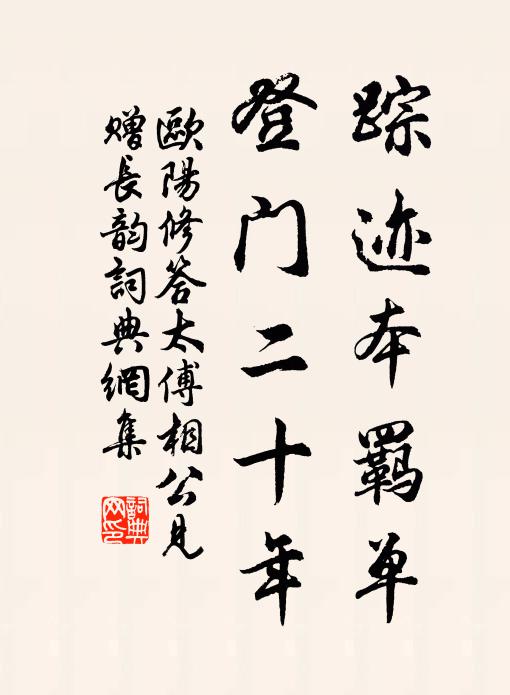 踪迹本羁单
登门二十年
歐陽修答太傅相公見
贈長韵詞典網集
詞典
网印